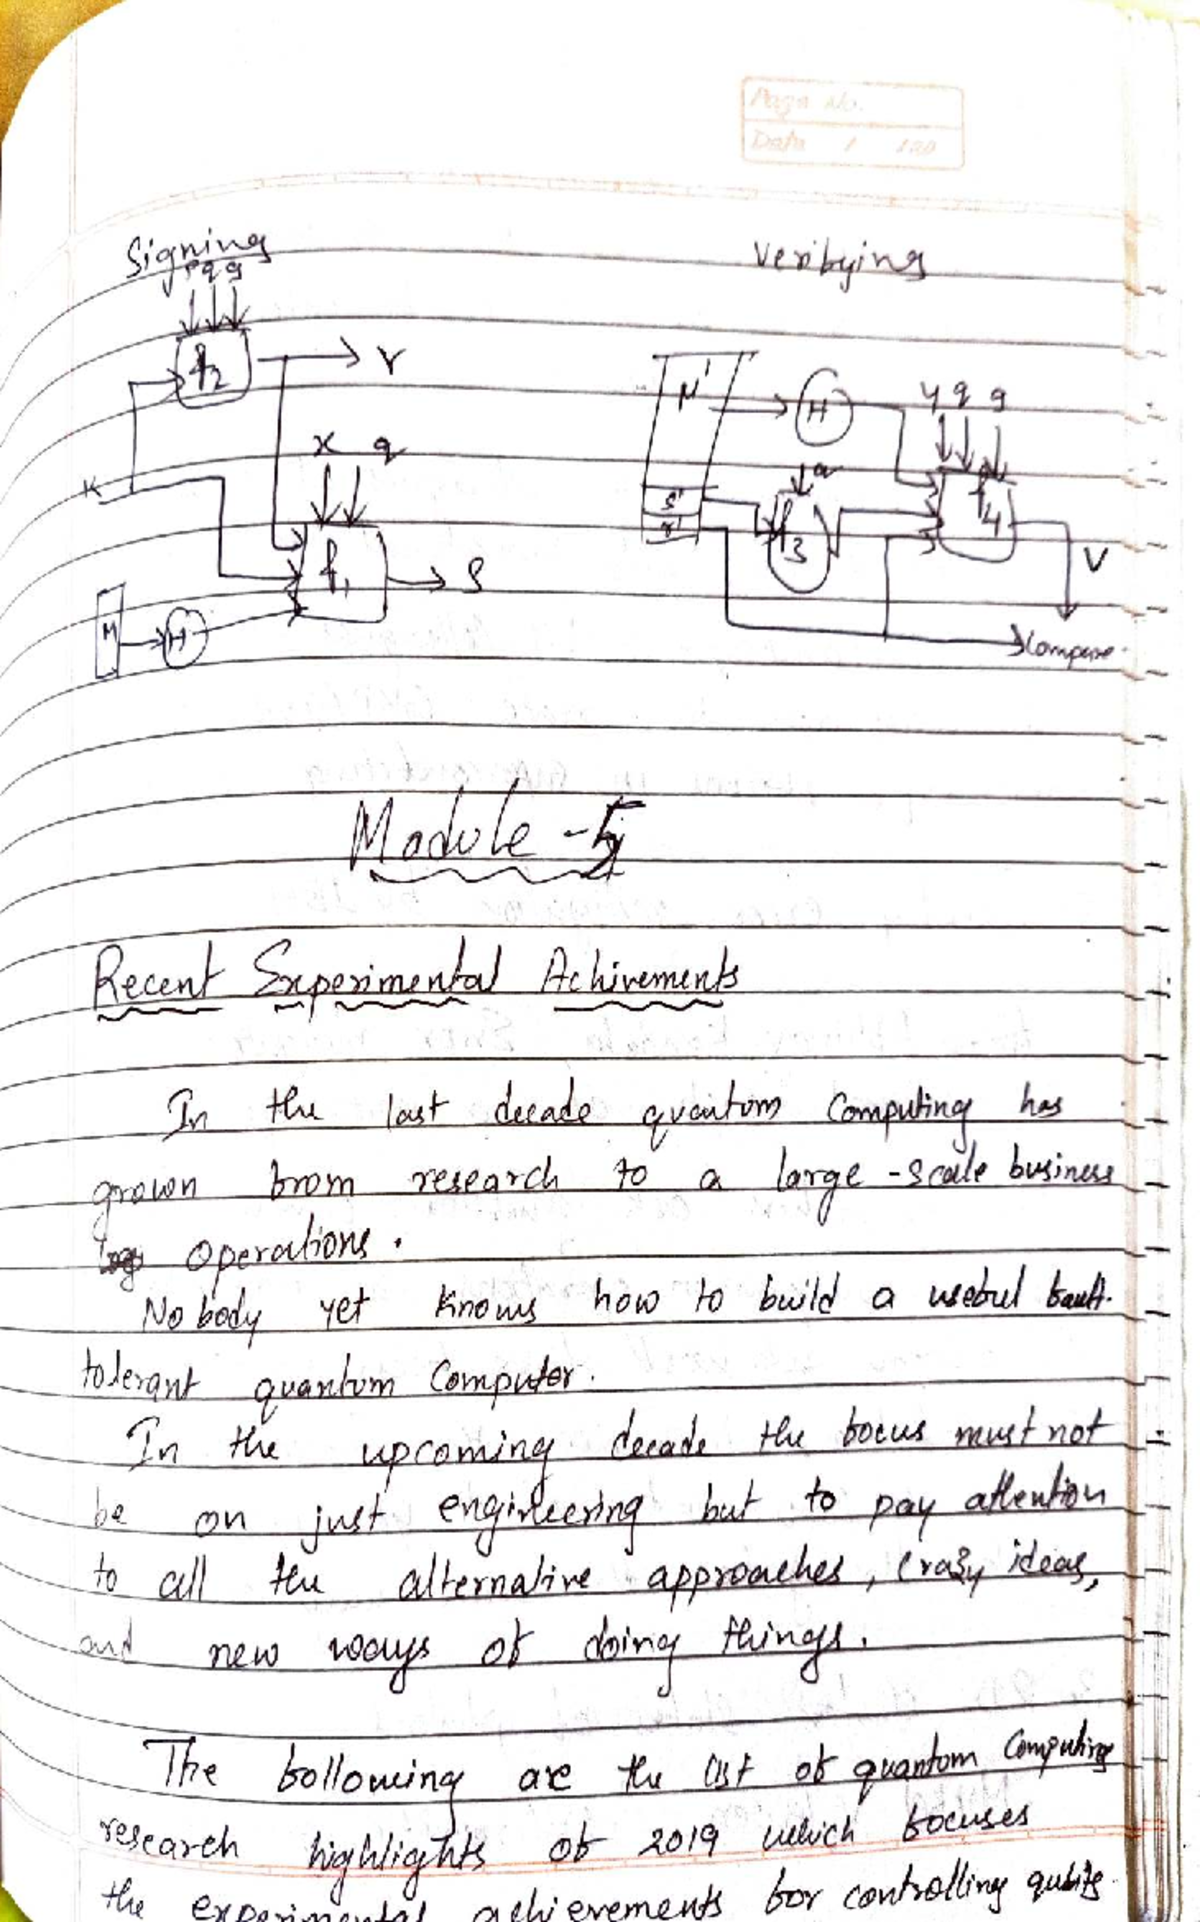 Page No.
Date
Signing
Verifying
p q g
f2
r
k
x q
f1
S
M
H
M'
H
y q g
s'
r'
q
f3
f4
V
Compare
Module - 5
Recent Experimental Achivements
In the last decade quantum Computing has
grown from research to a large - scale business
operations.
Nobody yet knows how to build a useful fault-
tolerant quantum Computer.
In the upcoming decade the focus must not
be on just engineering but to pay attention
to all the alternative approaches, Crazy ideas,
and new ways of doing things.
The following are the list of quantum Computing
research highlights of 2019 which focuses
the experimental achievements for controlling qubits